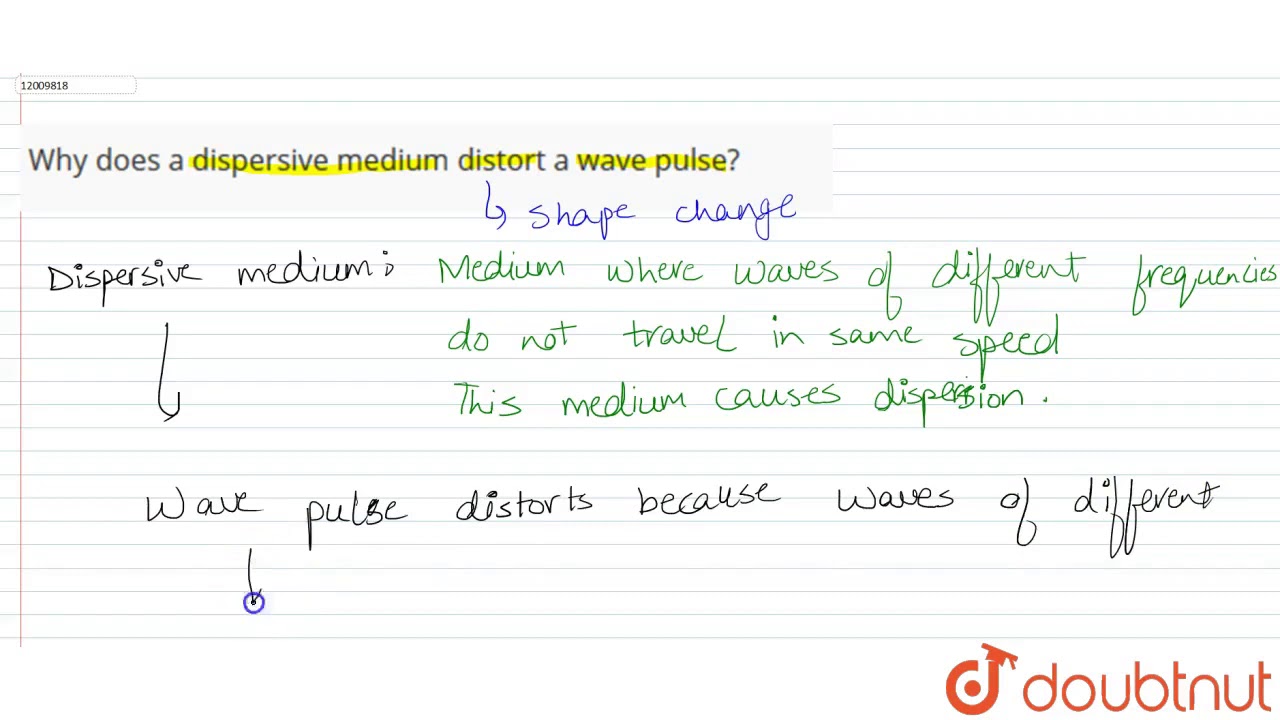 12009818
Why does a dispersive medium distort a wave pulse?
↳ shape change
Dispersive medium: Medium where waves of different frequencies
do not travel in same speed
This medium causes dispersion.
Wave pulse distorts because waves of different
doubtnut